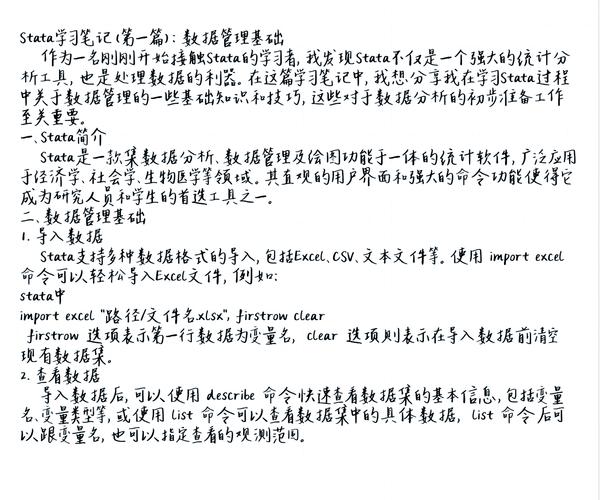 Stata学习笔记(第一篇):数据管理基础
作为一名刚刚开始接触Stata的学习者,我发现Stata不仅是一个强大的统计分
析工具,也是处理数据的利器。在这篇学习笔记中,我想分享我在学习Stata过程
中关于数据管理的一些基础知识和技巧,这些对于数据分析的初步准备工作
至关重要。
一、Stata简介
Stata是一款集数据分析、数据管理及绘图功能于一体的统计软件,广泛应用
于经济学、社会学、生物医学等领域。其直观的用户界面和强大的命令功能使得它
成为研究人员和学生的首选工具之一。
二、数据管理基础
1. 导入数据
Stata支持多种数据格式的导入,包括Excel、CSV、文本文件等。使用 import excel
命令可以轻松导入Excel文件,例如:
stata中
import excel "路径/文件名.xlsx", firstrow clear
firstrow 选项表示第一行数据为变量名, clear 选项则表示在导入数据前清空
现有数据集。
2. 查看数据
导入数据后,可以使用 describe 命令快速查看数据集的基本信息,包括变量
名、变量类型等,或使用 list 命令可以查看数据集中的具体数据, list 命令后可
以跟变量名,也可以指定查看的观测范围。